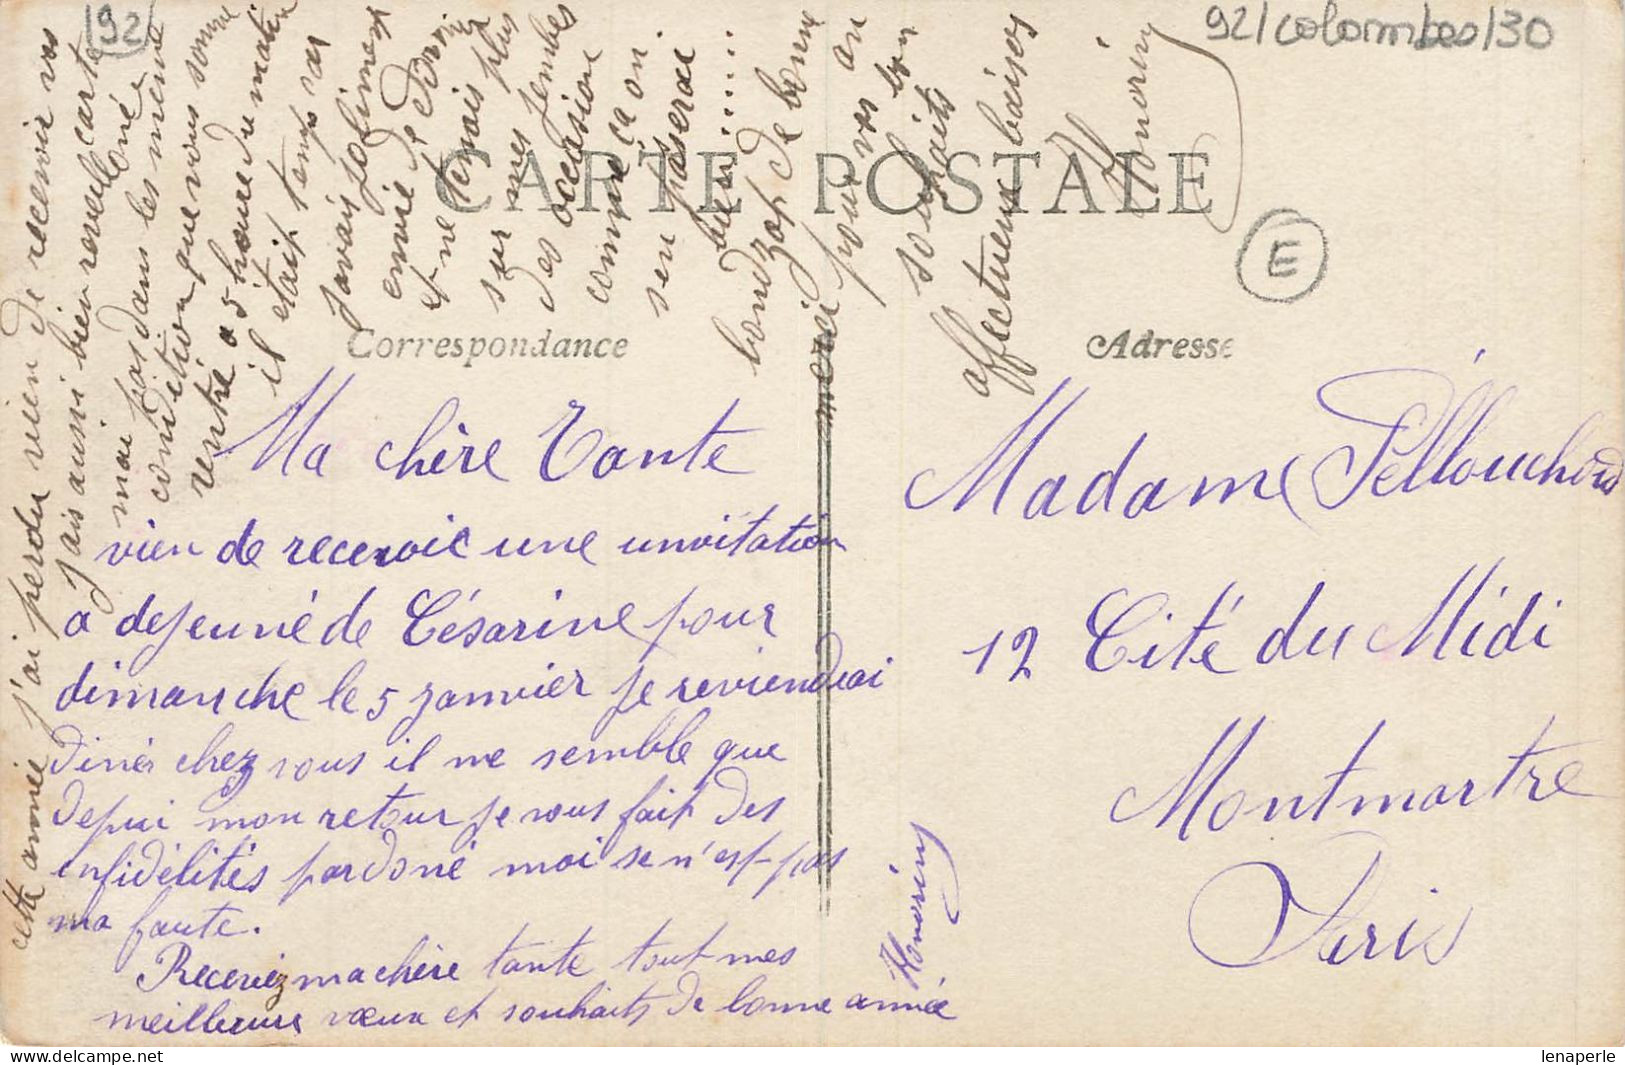 92
92/colombes/30
CARTE POSTALE
E
Correspondance
Adresse
Ma chère Tante
vien de recevoir une invitation
a dejeuné de Césarine pour
dimanche le 5 janvier je reviendrai
diner chez vous il me semble que
depui mon retour je vous fait des
infidélités pardoné moi se n'est pas
ma faute.
Recevez ma chère tante tout mes
meilleurs vœux et souhaits de bonne année
Honorin
Madame Pellouchoud
12 Cité du Midi
Montmartre
Paris
cette année j'ai perdu rien de recevoir vos
jais aussi bien reveilloné
mai pas dans les même
condition que vous somme
rentré a 5 heure du matin
il etait temp car
javais joliment
envie de dormir
et ne tenais plus
sur mes jembes
des occasions
comme ça on
sen passerai
bien.....
merci pour vos
souhaits
affectueux baisers
Honorin